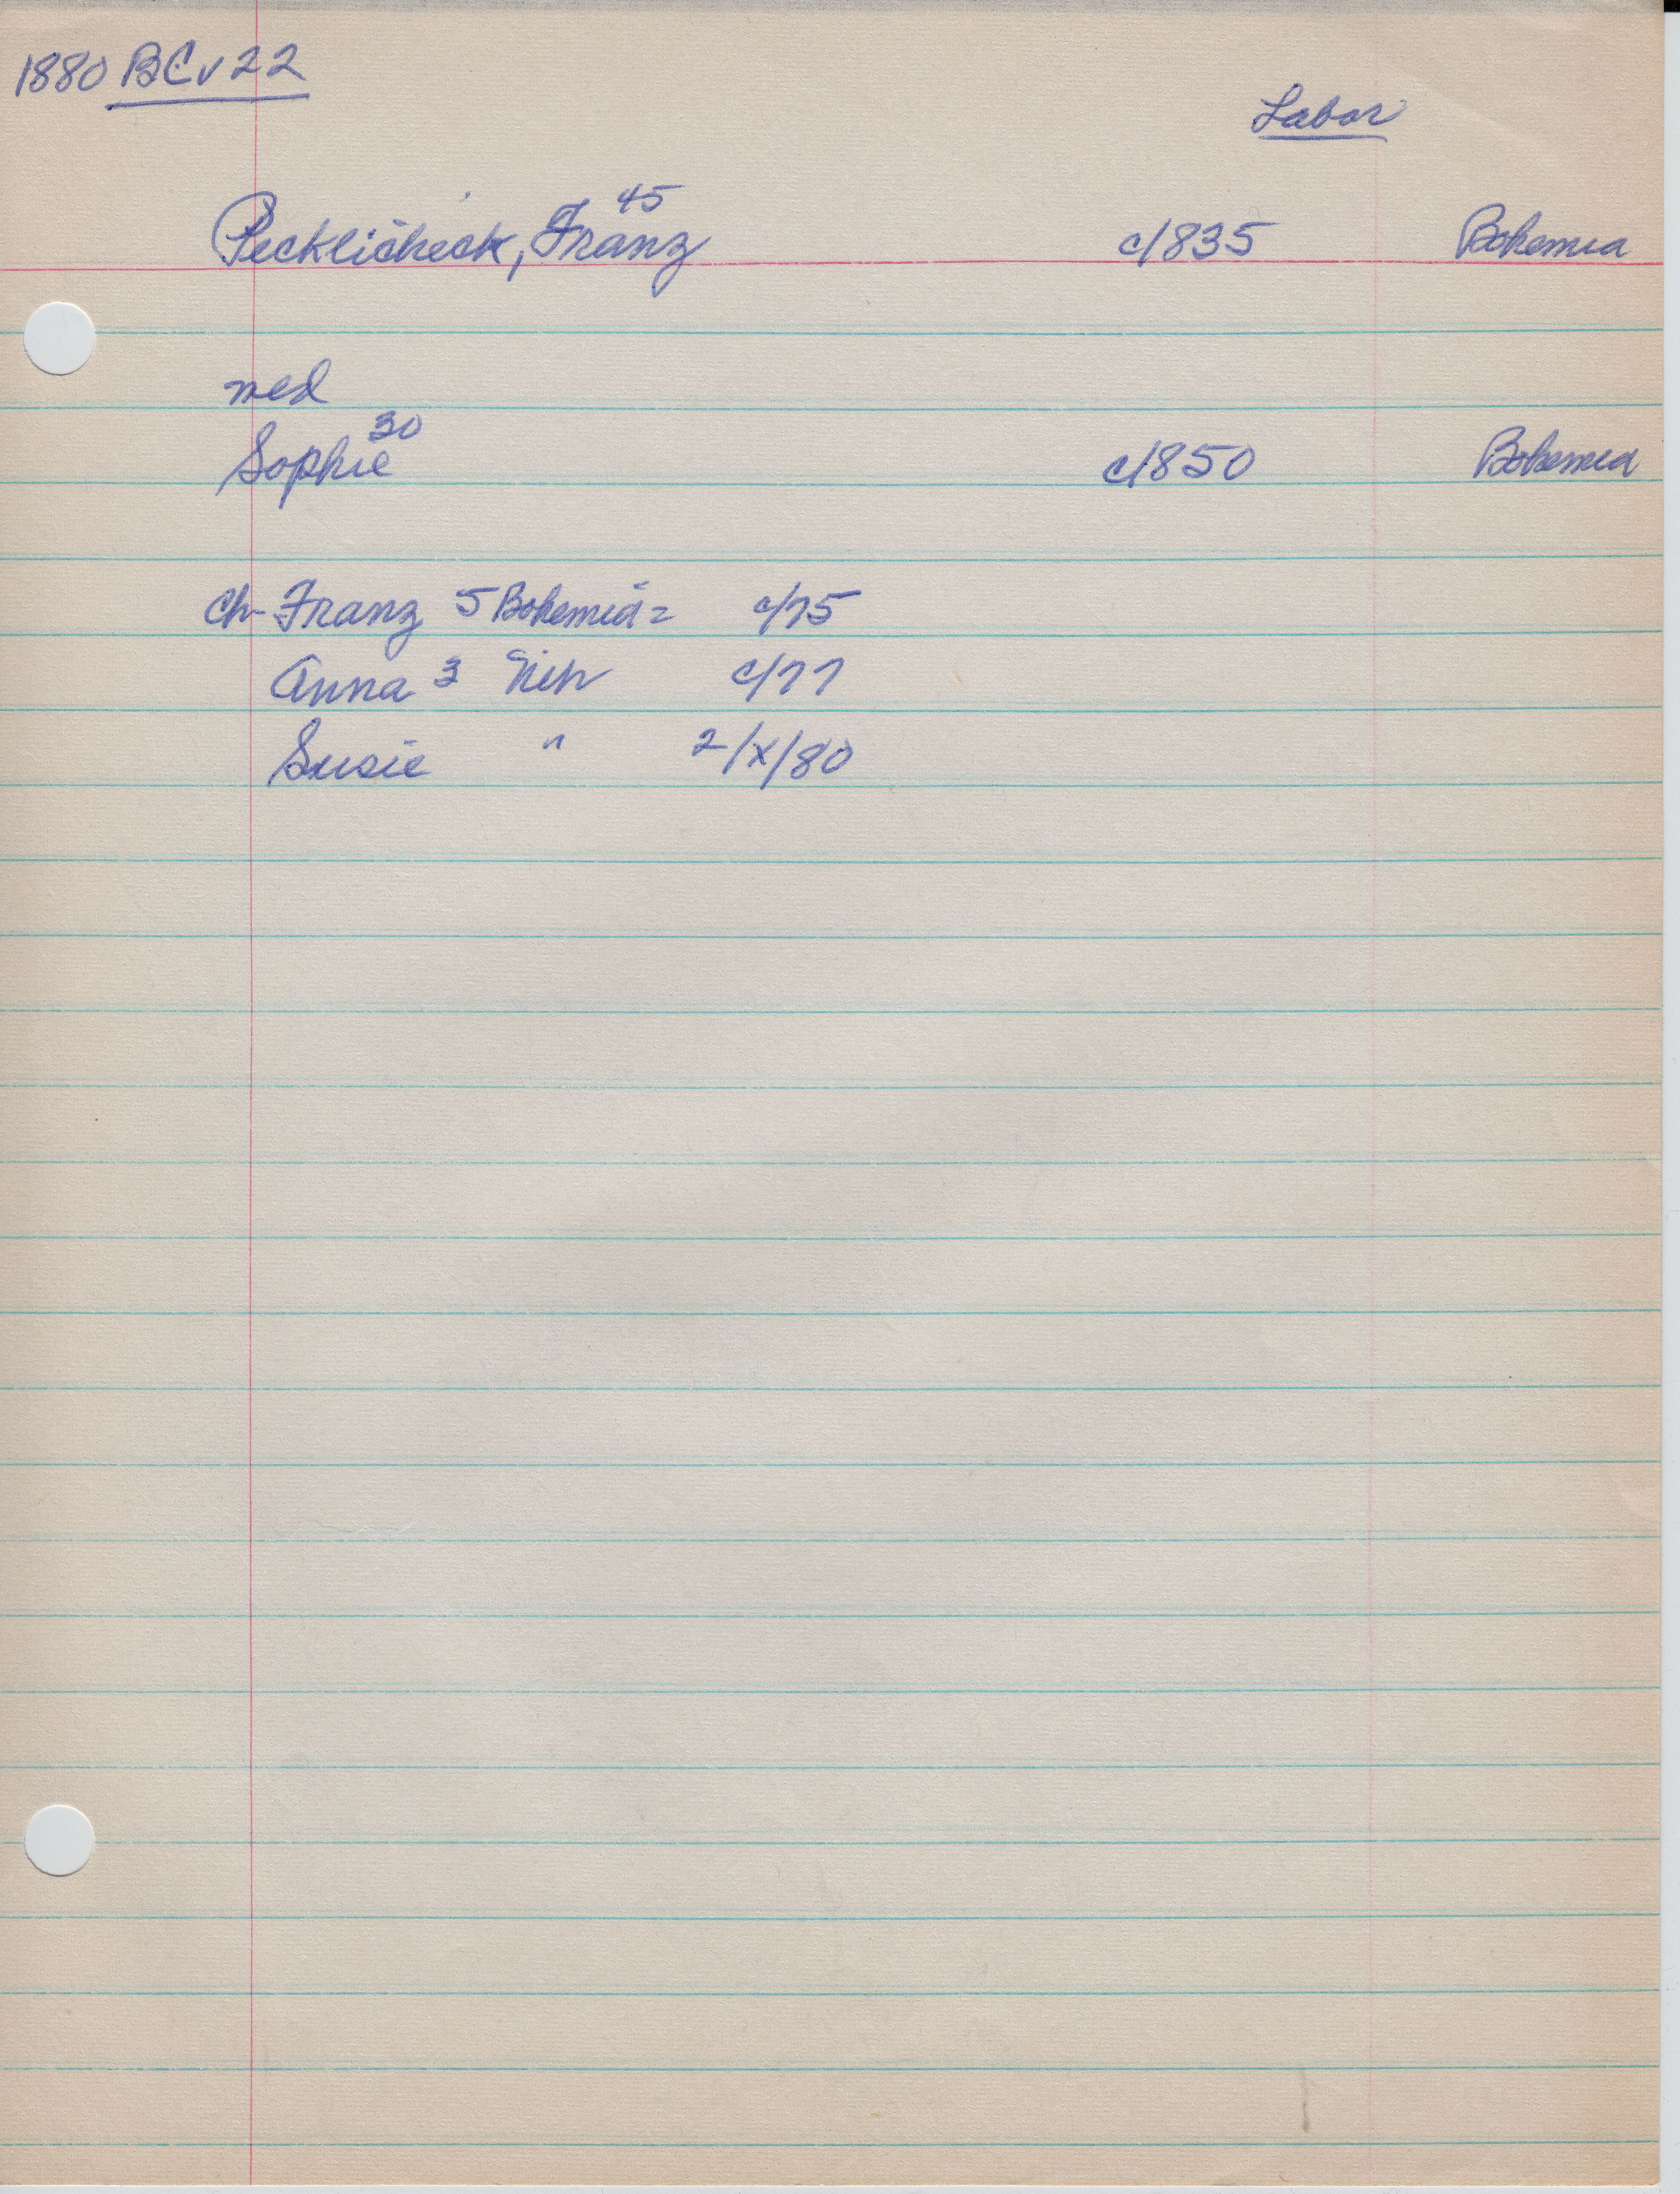 1880 BCv22
Labor
Pecklicheck, Franz 45 c/1835 Bohemia
med
Sophie 30 c/1850 Bohemia
ch- Franz 5 Bohemia = c/75
Anna 3 c/77
Susie " 2/X/80